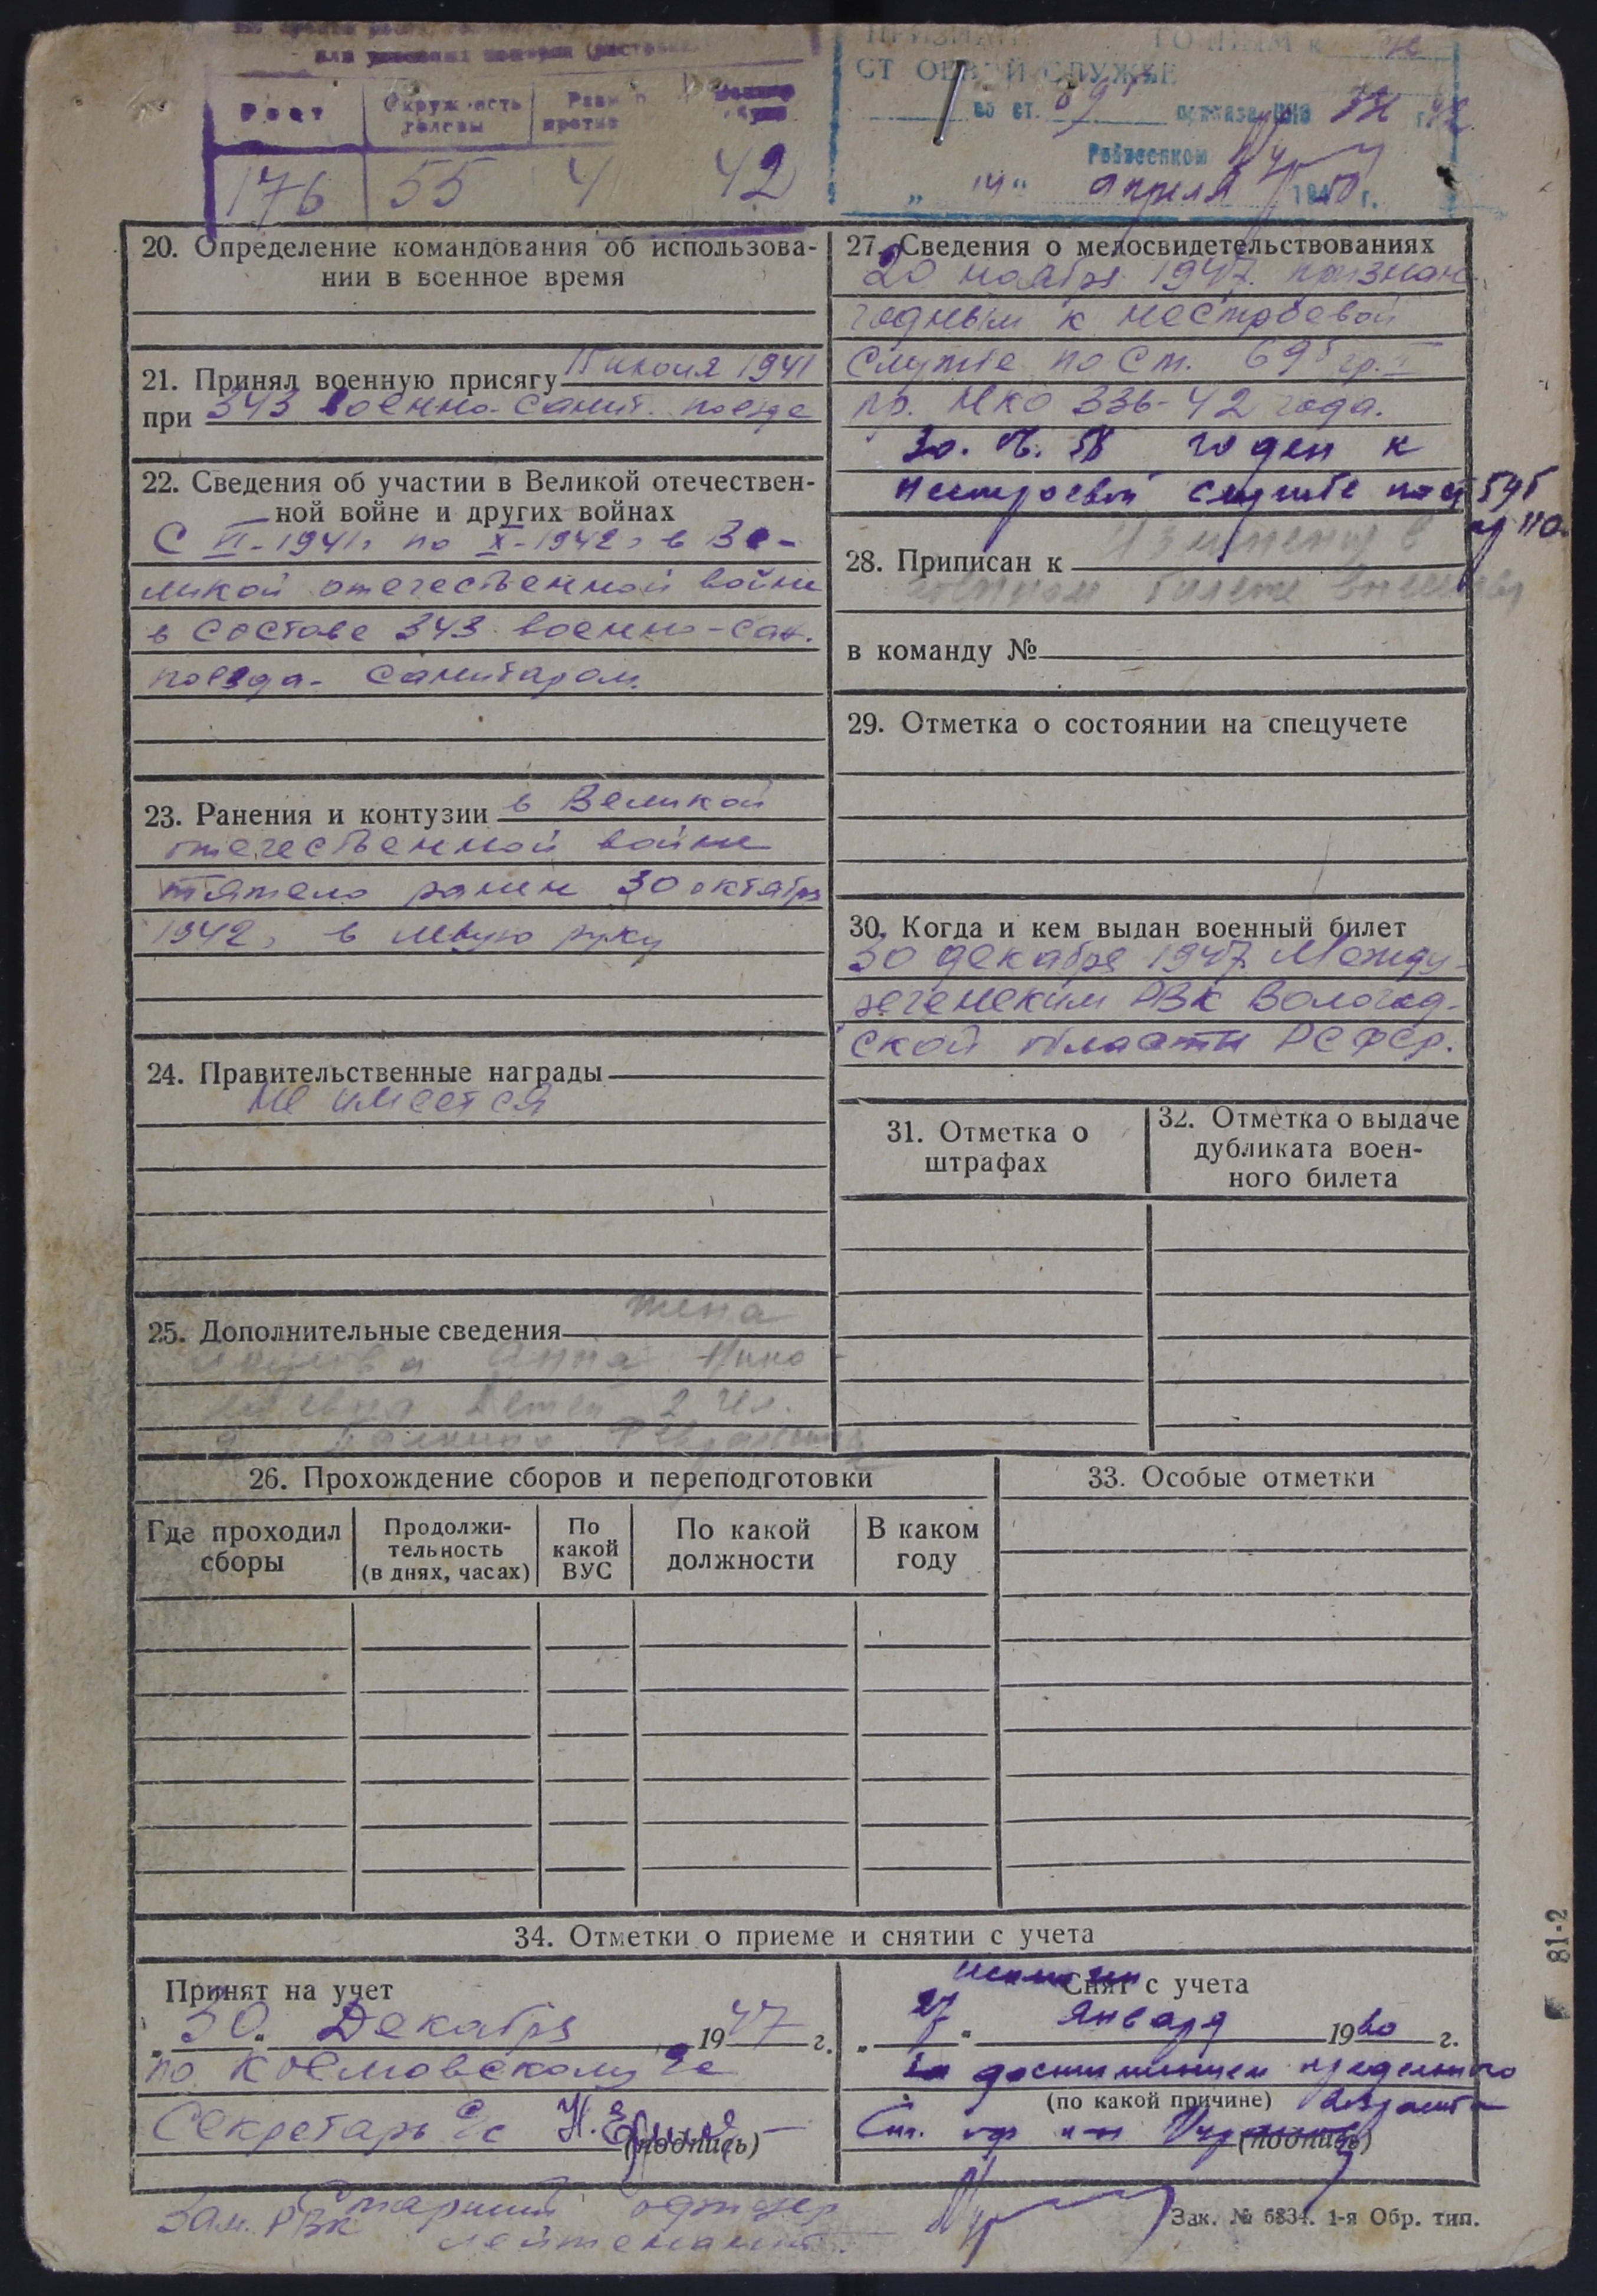 Рост
Окружность головы
176 55 4 42
СТ ОЕВОЙ СЛУЖБЕ
по ст. приказа НКО
Райвоенком
„ 14 “ апреля 1950 г.
20. Определение командования об использова-
нии в военное время
21. Принял военную присягу июля 1941
при 343 военно-санит. поезде
22. Сведения об участии в Великой отечествен-
ной войне и других войнах
С VI-1941г по X-1942г в Ве-
ликой отечественной войне
в составе 343 военно-сан.
поезда- Санитаром.
23. Ранения и контузии в Великой
отечественной войне
тяжело ранен 30 октября
1942г в левую руку
24. Правительственные награды
не имеется
25. Дополнительные сведения жена
Анна Нико-
лаевна Детей 2 чел.
26. Прохождение сборов и переподготовки
Где проходил сборы
Продолжи-
тельность
(в днях, часах)
По какой ВУС
По какой должности
В каком году
27. Сведения о медосвидетельствованиях
20 ноября 1947 признан
годным к нестроевой
службе по ст. 69б гр. I
пр. НКО 336-42 года.
годен к
нестроевой службе по ст 59б
28. Приписан к
Изменения в
военном билете
в команду №
29. Отметка о состоянии на спецучете
30. Когда и кем выдан военный билет
30 декабря 1947 Между-
реченским РВК Вологод-
ской области РСФСР.
31. Отметка о
штрафах
32. Отметка о выдаче
дубликата воен-
ного билета
33. Особые отметки
34. Отметки о приеме и снятии с учета
Принят на учет
„ 30 “ Декабря 1947 г.
по сс
Секретарь с/с Н.
(подпись)
исключен
Снят с учета
„ 27 “ Января 1960 г.
за достижением предельного
(по какой причине) возраста
Ст. оф
(подпись)
Зам. РВК Старший офицер
лейтенант.
Зак. № 6834. 1-я Обр. тип.
81-2